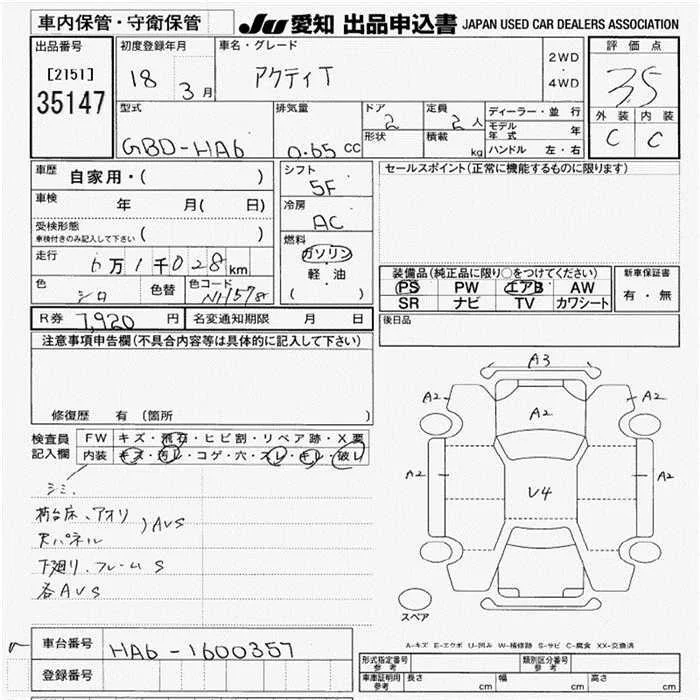 車内保管・守衛保管
JU 愛知 出品申込書 JAPAN USED CAR DEALERS ASSOCIATION
出品番号
[2151]
35147
初度登録年月
18 3月
車名・グレード
アクティT
2WD
・
4WD
評価点
3.5
外装 内装
C C
型式
GBD-HA6
排気量
0.65 CC
ドア
2
形状
定員
2人
積載
kg
ディーラー・並行
モデル年式 年
ハンドル 左・右
車歴 自家用・( )
車検 年 月( 日)
受検形態
車検付きのみ記入して下さい ( )
走行 6万1千028km
色 シロ 色替 色コード NH578
シフト
5F
冷房
AC
燃料
ガソリン
軽油
( )
セールスポイント(正常に機能するものに限ります)
装備品(純正品に限り○をつけてください)
PS PW エアB AW
SR ナビ TV カワシート
新車保証書
有・無
R券 7,920円 名変通知期限 月 日
後日品
注意事項申告欄(不具合内容等は具体的に記入して下さい)
修復歴 有 (箇所 )
検査員記入欄
FW キズ・飛石・ヒビ割・リペア跡・X要
内装 キズ・汚レ・コゲ・穴・スレ・キレ・破レ
シミ、
荷台床、アオリ
)AVS
天パネル
下廻り、フレーム S
各AVS
A3
A2 A2
A2
A2 A2
V4
スペア
A-キズ E-エクボ U-凹み W-補修跡 S-サビ C-腐食 XX-交換済
車台番号 HA6-1600357
登録番号
形式指定番号 参考
類別区分番号 参考
車庫証明用 参考 長さ cm 幅 cm 高さ cm